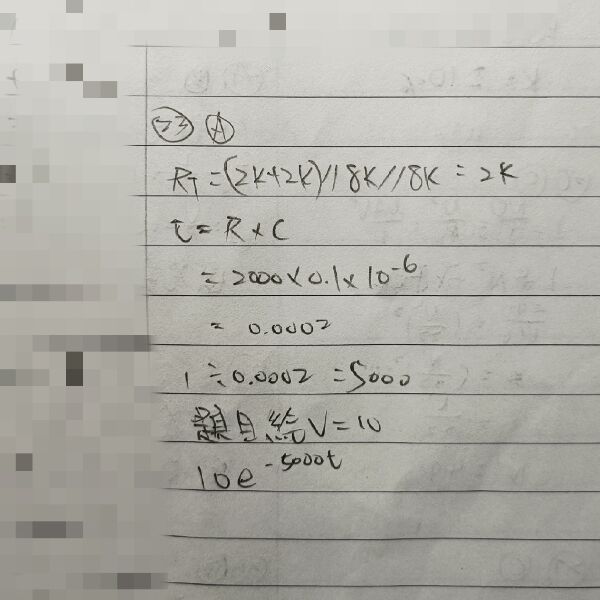 23 A
RT = (2K+2K)//8K//8K = 2K
τ = R×C
= 2000×0.1×10⁻⁶
= 0.0002
1÷0.0002 = 5000
題目給V=10
10e⁻⁵⁰⁰⁰ᵗ